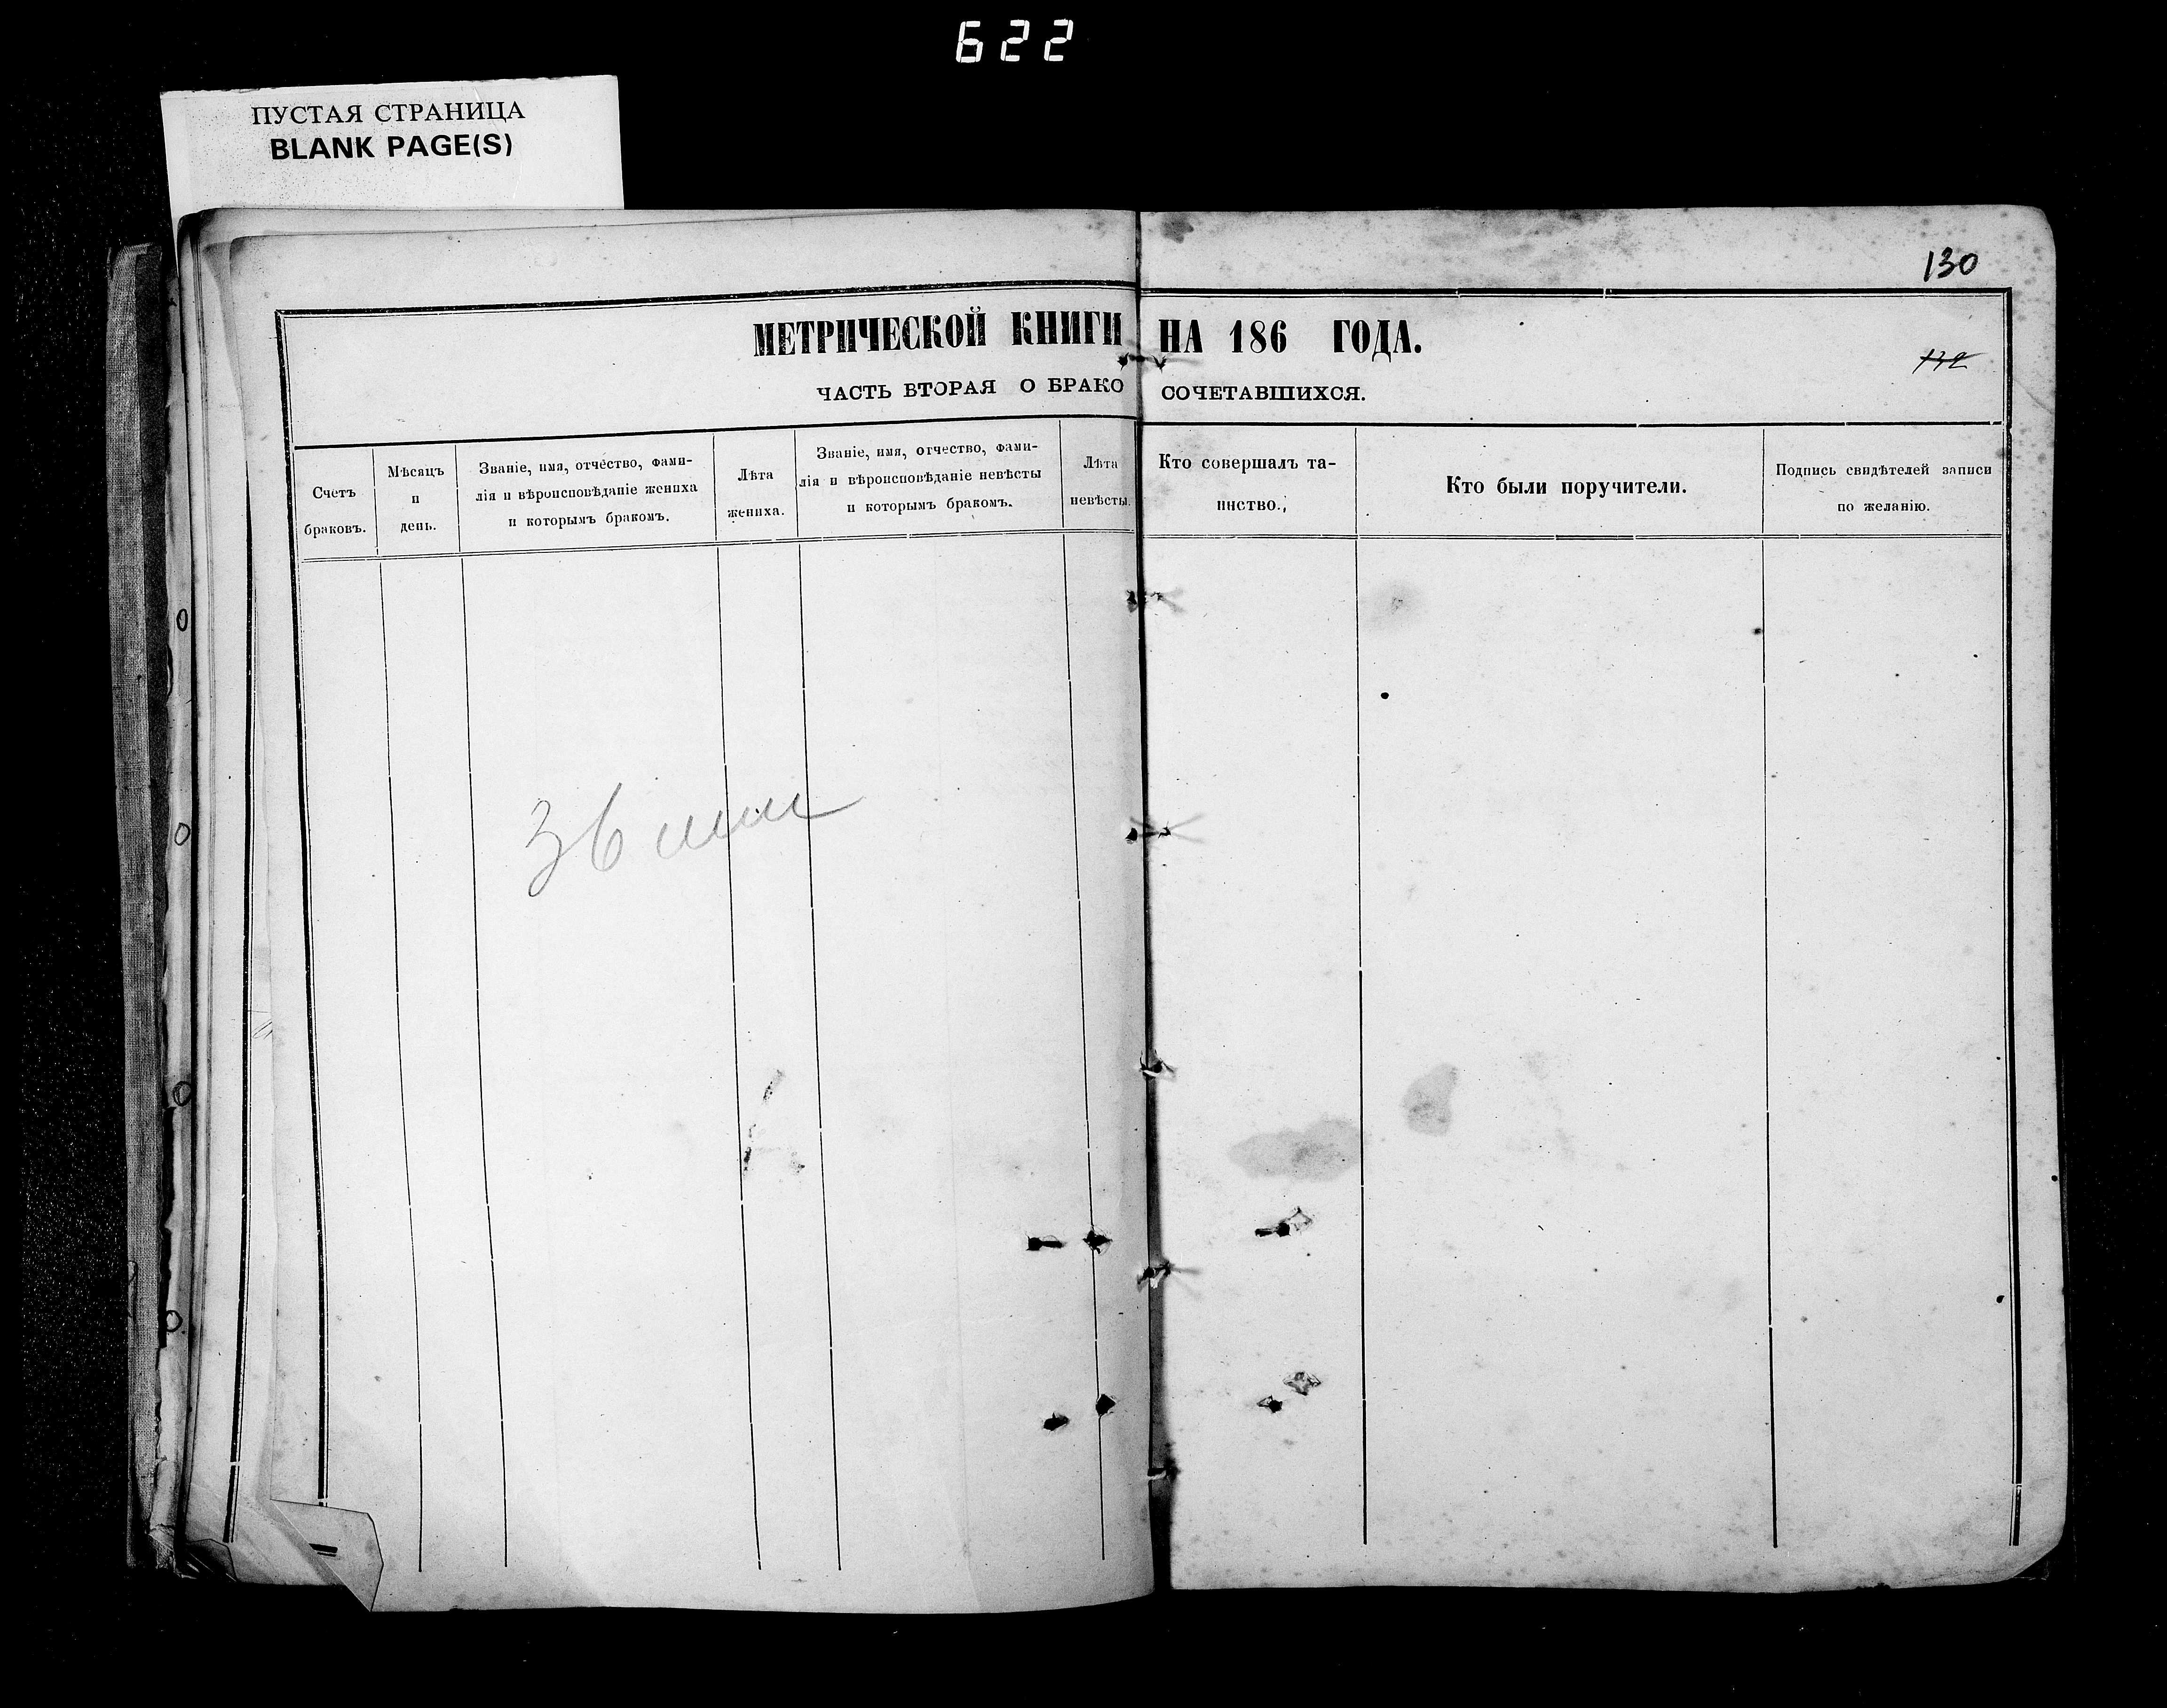 622
ПУСТАЯ СТРАНИЦА
BLANK PAGE(S)
130
МЕТРИЧЕСКОЙ КНИГИ НА 186 ГОДА.
132
ЧАСТЬ ВТОРАЯ О БРАКОСОЧЕТАВШИХСЯ.
Счетъ
браковъ.
Мѣсяцъ
и
день.
Званіе, имя, отчество, фами-
лія и вѣроисповѣданіе жениха
и которымъ бракомъ.
Лѣта
жениха.
Званіе, имя, отчество, фами-
лія и вѣроисповѣданіе невѣсты
и которымъ бракомъ.
Лѣта
невѣсты.
Кто совершалъ та-
инство.,
Кто были поручители.
Подпись свидѣтелей записи
по желанію.
36